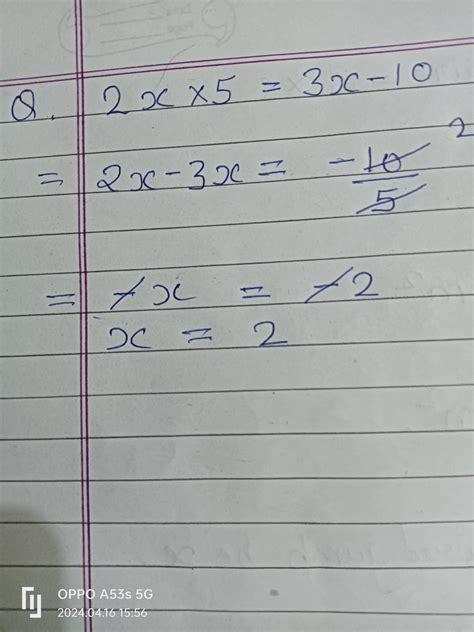 Q. 2x × 5 = 3x - 10
= 2x - 3x = -10/5 2
= -x = -2
x = 2
OPPO A53s 5G
2024.04.16 15:56